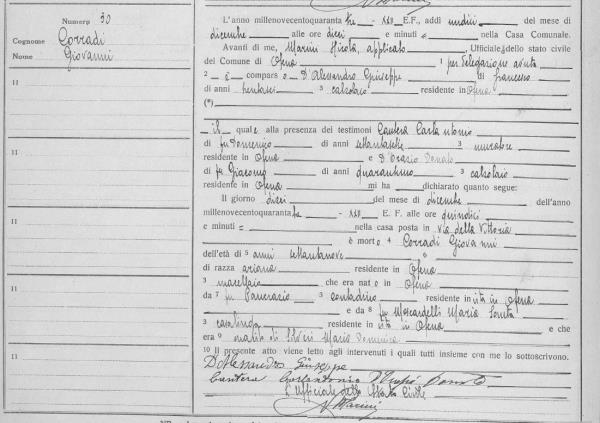 Numero 30
Cognome Corradi
Nome Giovanni
L'anno millenovecentoquaranta tre - XXII E.F., addì undici del mese di
dicembre alle ore dieci e minuti = nella Casa Comunale.
Avanti di me, Marini Nicola, applicato Ufficiale dello stato civile
del Comune di Ofena 1 per delegazione avuta
2 è compars o D'Alessandro Giuseppe di Francesco
di anni 3 calzolaio residente in Ofena
(*)
il quale alla presenza dei testimoni Cantera Carlantonio
di fu Domenico di anni settantasette 3 muratore
residente in Ofena e D'Orazio Donato
di fu Giacomo di anni quarantuno 3 calzolaio
residente in Ofena mi ha dichiarato quanto segue:
Il giorno dieci del mese di dicembre dell'anno
millenovecentoquaranta tre - XXII E. F. alle ore quindici
e minuti = nella casa posta in via della Vittoria
è mort o 4 Corradi Giovanni
dell'età di 5 anni settantanove 6
di razza ariana residente in Ofena
3 macellaio che era nat o in Ofena
da 7 fu Pancrazio 3 contadino residente in vita in Ofena
e da 8 fu Moscardelli Maria Loreta
3 casalinga residente in vita in Ofena e che
era 9 marito di Silveri Maria Domenica
10 Il presente atto viene letto agli intervenuti i quali tutti insieme con me lo sottoscrivono.
D'Alessandro Giuseppe
Cantera Carlantonio D'Orazio Donato
L'Ufficiale dello Stato Civile
N Marini
11
11
11
11
11
11